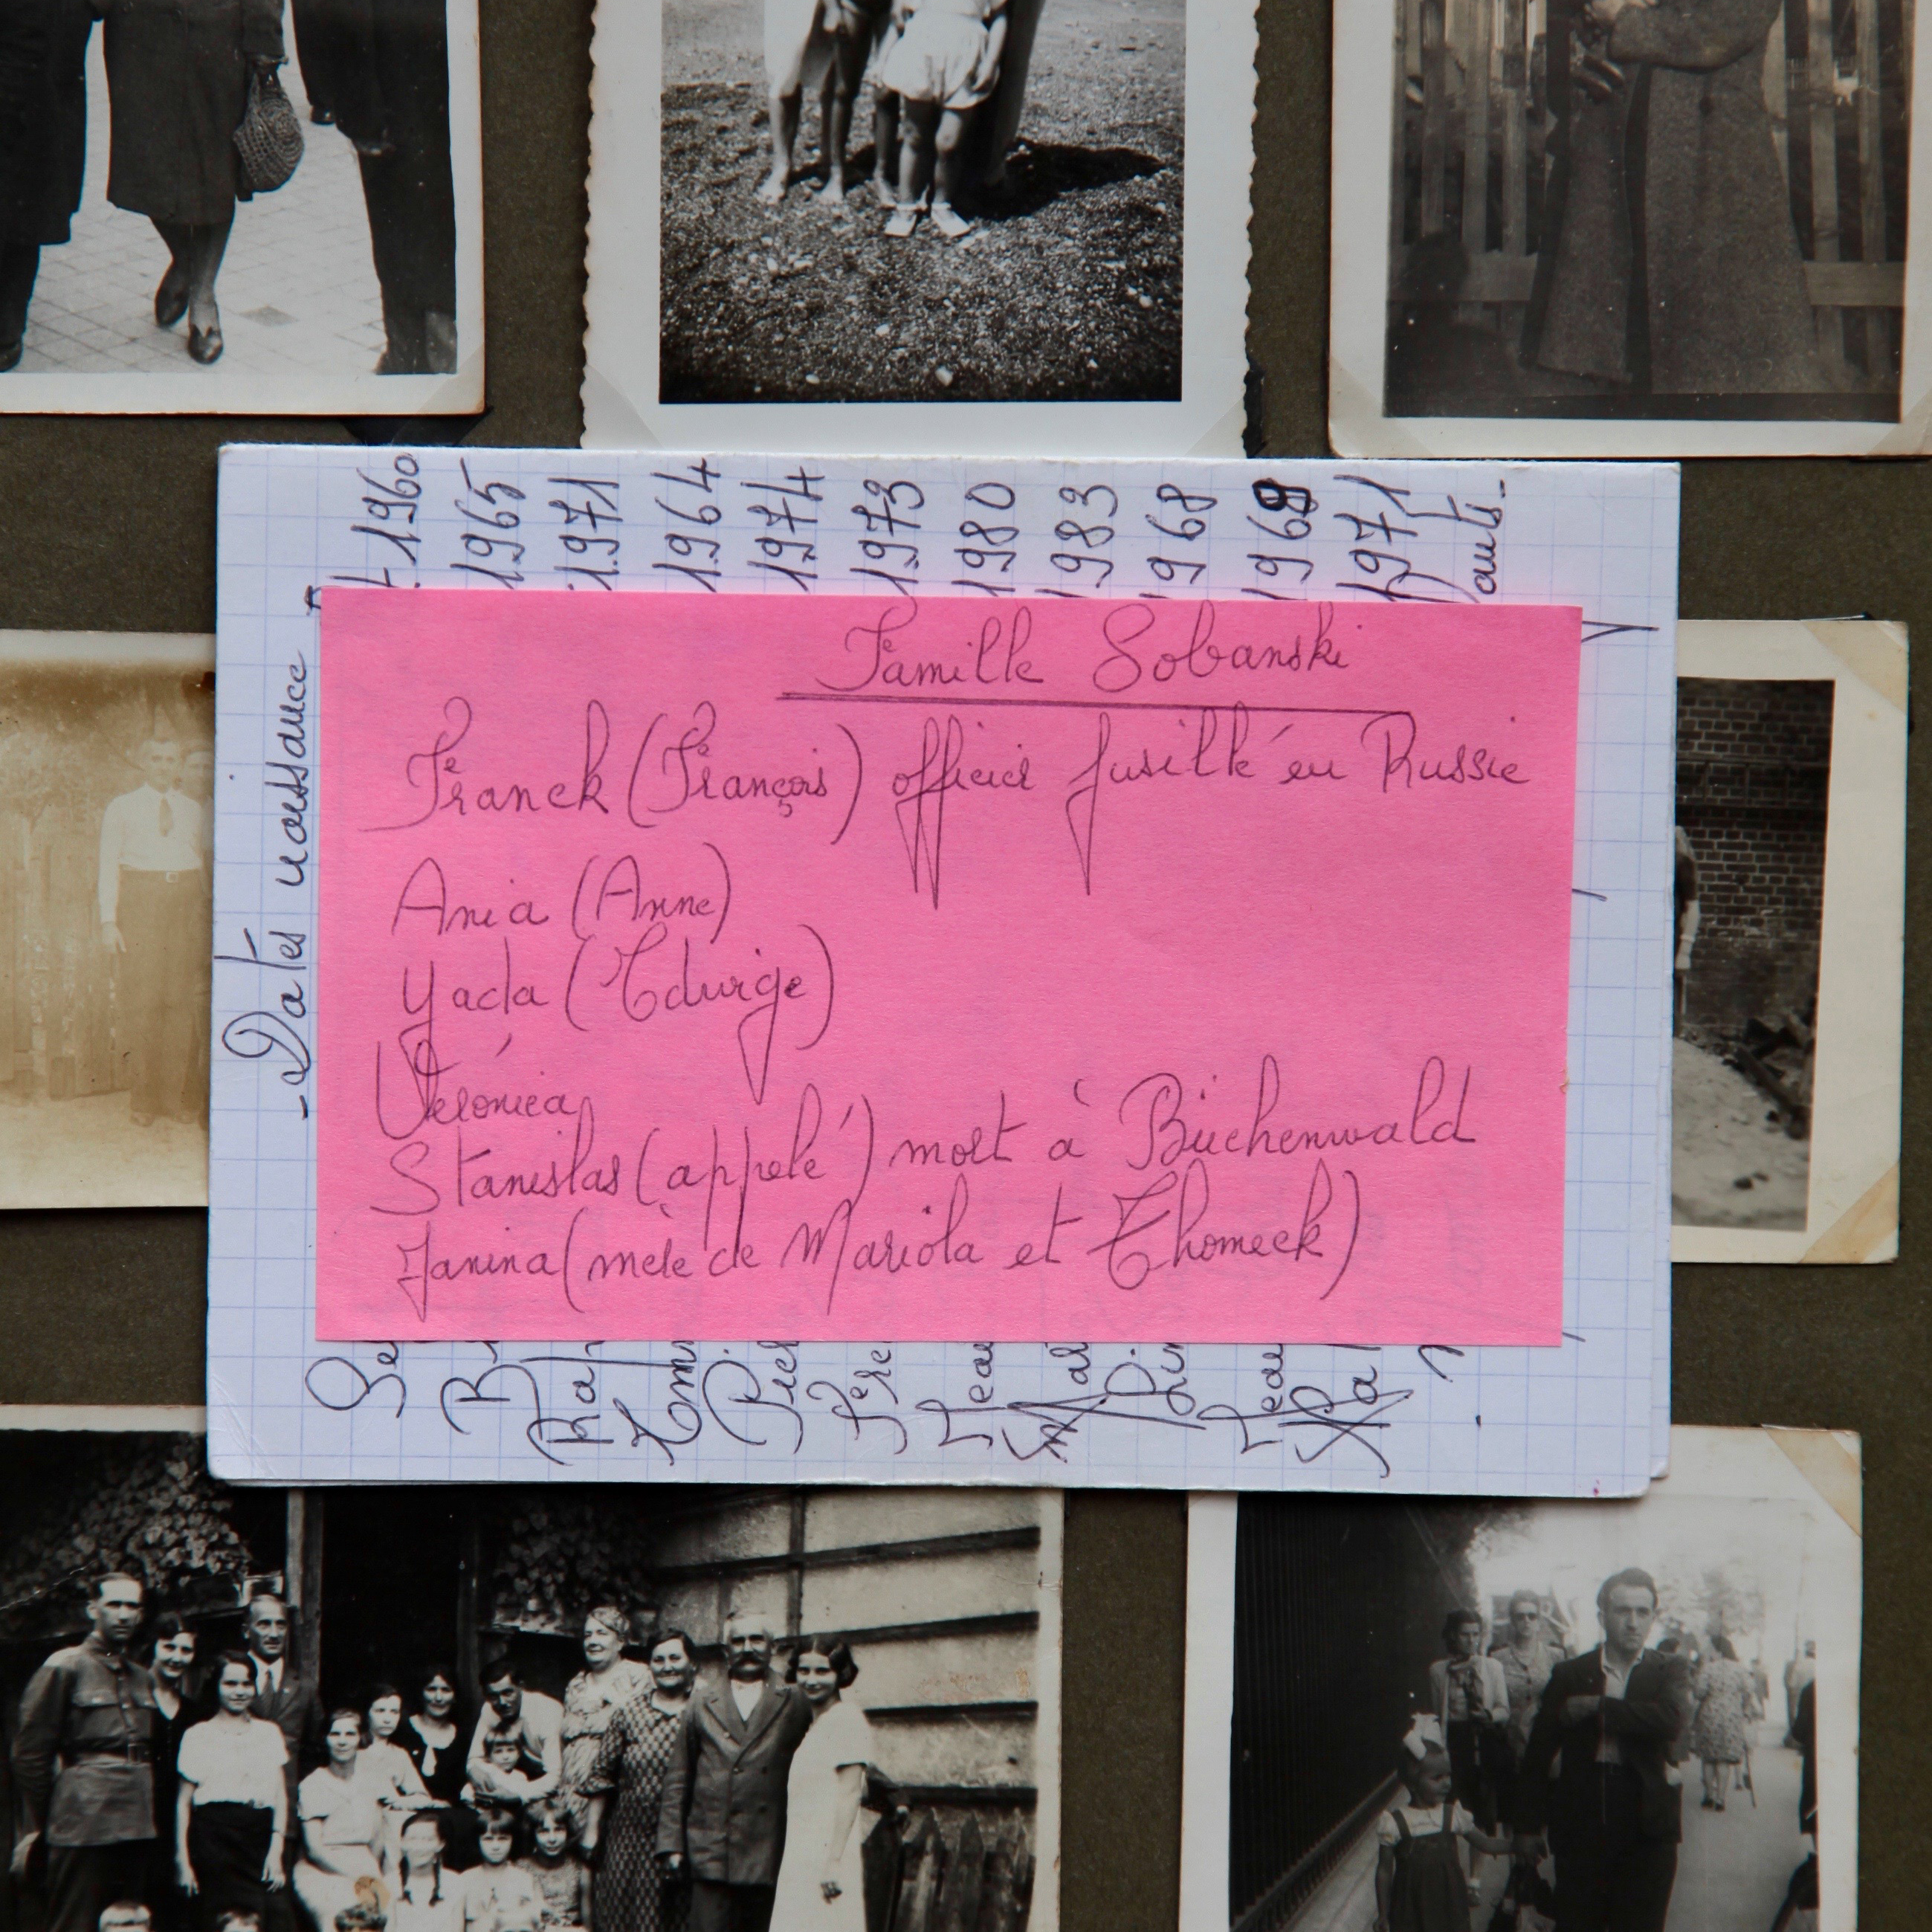 Famille Sobanski
Franck (François) officier fusillé en Russie
Ania (Anne)
Yada (Edwige)
Véronica
Stanislas (appelé) mort à Büchenwald
Janina (mère de Mariola et Thomeck)
- Dates naissance
1960
1965
1971
1964
1974
1973
1980
1983
1968
1969
1971